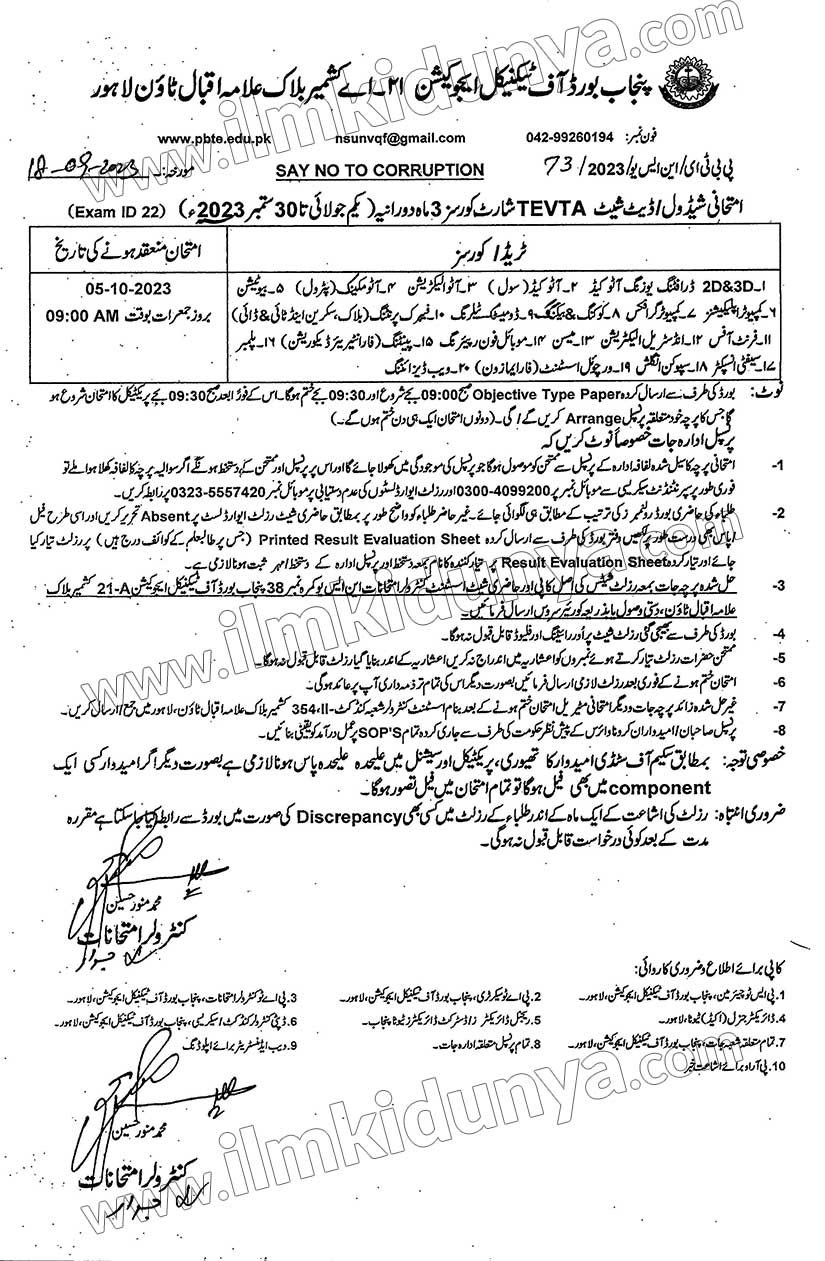 پنجاب بورڈ آف ٹیکنیکل ایجوکیشن ۲۱۔اے کشمیر بلاک علامہ اقبال ٹاؤن لاہور
فون نمبر: 042-99260194 nsunvqf@gmail.com www.pbte.edu.pk
پی بی ٹی ای/این ایس یو/2023/73 SAY NO TO CORRUPTION مورخہ: 18-09-2023
امتحانی شیڈول/ڈیٹ شیٹ TEVTA شارٹ کورسز 3 ماہ دورانیہ (یکم جولائی تا 30 ستمبر 2023ء) (Exam ID 22)
ٹریڈ/کورسز امتحان منعقد ہونے کی تاریخ
۱۔2D&3D ڈرافٹنگ یوزنگ آٹو کیڈ ۲۔آٹو کیڈ (سول) ۳۔آٹو الیکٹریشن ۴۔آٹو مکینک (پٹرول) ۵۔بیوٹیشن 05-10-2023
۶۔کمپیوٹر اپلیکیشنز ۷۔کمپیوٹر گرافکس ۸۔کوکنگ & بیکنگ ۹۔ڈومیسٹک ٹیلرنگ ۱۰۔فیبرک پرنٹنگ (بلاک، سکرین اینڈ ٹائی & ڈائی) بروز جمعرات بوقت 09:00 AM
۱۱۔فرنٹ آفس ۱۲۔انڈسٹریل الیکٹریشن ۱۳۔میسن ۱۴۔موبائل فون رپیئرنگ ۱۵۔پینٹنگ (فار انٹیریئر ڈیکوریشن) ۱۶۔پلمبر
۱۷۔سیفٹی انسپکٹر ۱۸۔سپوکن انگلش ۱۹۔ورچوئل اسسٹنٹ (فار ایمازون) ۲۰۔ویب ڈیزائننگ
نوٹ: بورڈ کی طرف سے ارسال کردہ Objective Type Paper صبح 09:00 بجے شروع اور 09:30 بجے ختم ہوگا۔ اس کے فوراً بعد صبح 09:30 بجے پریکٹیکل کا امتحان شروع ہو
گا جس کا پرچہ خود متعلقہ پرنسپل Arrange کریں گے/گی۔ (دونوں امتحان ایک ہی دن ختم ہوں گے۔)
پرنسپل ادارہ جات خصوصاً نوٹ کریں کہ
1- امتحانی پرچہ کا سیل شدہ لفافہ ادارہ کے پرنسپل سے ممتحن کو موصول ہوگا جو پرنسپل کی موجودگی میں کھولا جائے گا اور اس پر پرنسپل اور ممتحن کے دستخط ہونگے اگر سوالیہ پرچہ کا لفافہ کھلا ہوا ملے تو
فوری طور پر سپرنٹنڈنٹ سیکریسی سے موبائل نمبر 0300-4099200 اور رزلٹ ایوارڈ لسٹوں کی عدم دستیابی پر موبائل نمبر 0323-5557420 پر رابطہ کریں۔
2- طلباء کی حاضری بورڈ رولنمبرز کی ترتیب کے مطابق ہی لگوائی جائے۔ غیر حاضر طلباء کو واضح طور پر بمطابق حاضری شیٹ رزلٹ ایوارڈ لسٹ پر Absent تحریر کریں اور اسی طرح فیل
/پاس بھی درست طور پر لکھیں دفتر بورڈ کی طرف سے ارسال کردہ Printed Result Evaluation Sheet (جس پر طالبعلم کے کوائف درج ہیں) پر رزلٹ تیار کیا
جائے اور تیار کردہ Result Evaluation Sheet پر تیار کنندہ کا نام بمعہ دستخط اور پرنسپل ادارہ کے دستخط/مہر ثبت ہونا لازمی ہے۔
3- حل شدہ پرچہ جات بمعہ رزلٹ شیٹس کی اصل کاپی اور حاضری شیٹ اسسٹنٹ کنٹرولر امتحانات این ایس یو کمرہ نمبر 38 پنجاب بورڈ آف ٹیکنیکل ایجوکیشن 21-A کشمیر بلاک
علامہ اقبال ٹاؤن، دستی وصول یا بذریعہ کورئیر سروس ارسال فرمائیں۔
4- بورڈ کی طرف سے بھیجی گئی رزلٹ شیٹ پر اوور رائیٹنگ اور فلیوڈ قابل قبول نہ ہوگا۔
5- ممتحن حضرات رزلٹ تیار کرتے ہوئے نمبروں کو اعشاریہ میں اندراج نہ کریں اعشاریہ کے اندر بنایا گیا رزلٹ قابل قبول نہ ہوگا۔
6- امتحان ختم ہونے کے فوری بعد رزلٹ لازمی ارسال فرمائیں بصورت دیگر اس کی تمام تر ذمہ داری آپ پر عائد ہوگی۔
7- غیر حل شدہ زائد پرچہ جات و دیگر امتحانی میٹریل امتحان ختم ہونے کے بعد بنام اسسٹنٹ کنٹرولر شعبہ کنڈکٹ-II، 354 کشمیر بلاک علامہ اقبال ٹاؤن، لاہور میں جمع/ارسال کریں۔
8- پرنسپل صاحبان/امیدواران کرونا وائرس کے پیش نظر حکومت کی طرف سے جاری کردہ تمام SOP'S پر عمل درآمد کو یقینی بنائیں۔
خصوصی توجہ: بمطابق سکیم آف سٹڈی امیدوار کا تھیوری، پریکٹیکل اور سیشنل میں علیحدہ علیحدہ پاس ہونا لازمی ہے بصورت دیگر اگر امیدوار کسی ایک
component میں بھی فیل ہوگا تو تمام امتحان میں فیل تصور ہوگا۔
ضروری انتباہ: رزلٹ کی اشاعت کے ایک ماہ کے اندر طلباء کے رزلٹ میں کسی بھی Discrepancy کی صورت میں بورڈ سے رابطہ کیا جا سکتا ہے مقررہ
مدت کے بعد کوئی درخواست قابل قبول نہ ہوگی۔
محمد منور حسین
کنٹرولر امتحانات
کاپی برائے اطلاع و ضروری کاروائی:
1. پی ایس ٹو چیئرمین، پنجاب بورڈ آف ٹیکنیکل ایجوکیشن، لاہور۔ 2. پی اے ٹو سیکرٹری، پنجاب بورڈ آف ٹیکنیکل ایجوکیشن، لاہور۔ 3. پی اے ٹو کنٹرولر امتحانات، پنجاب بورڈ آف ٹیکنیکل ایجوکیشن، لاہور۔
4. ڈائریکٹر جنرل (اکیڈ) ٹیوٹا، لاہور۔ 5. ریجنل ڈائریکٹرز/ڈسٹرکٹ ڈائریکٹرز ٹیوٹا پنجاب۔ 6. ڈپٹی کنٹرولر کنڈکٹ/سیکریسی، پنجاب بورڈ آف ٹیکنیکل ایجوکیشن، لاہور۔
7. تمام متعلقہ شعبہ جات، پنجاب بورڈ آف ٹیکنیکل ایجوکیشن، لاہور۔ 8. تمام پرنسپل متعلقہ ادارہ جات۔ 9. ویب ایڈمنسٹریٹر برائے اپلوڈنگ
10. پی آر او برائے اشاعت خبر
محمد منور حسین
کنٹرولر امتحانات
www.ilmkidunya.com
www.ilmkidunya.com
www.ilmkidunya.com
www.ilmkidunya.com